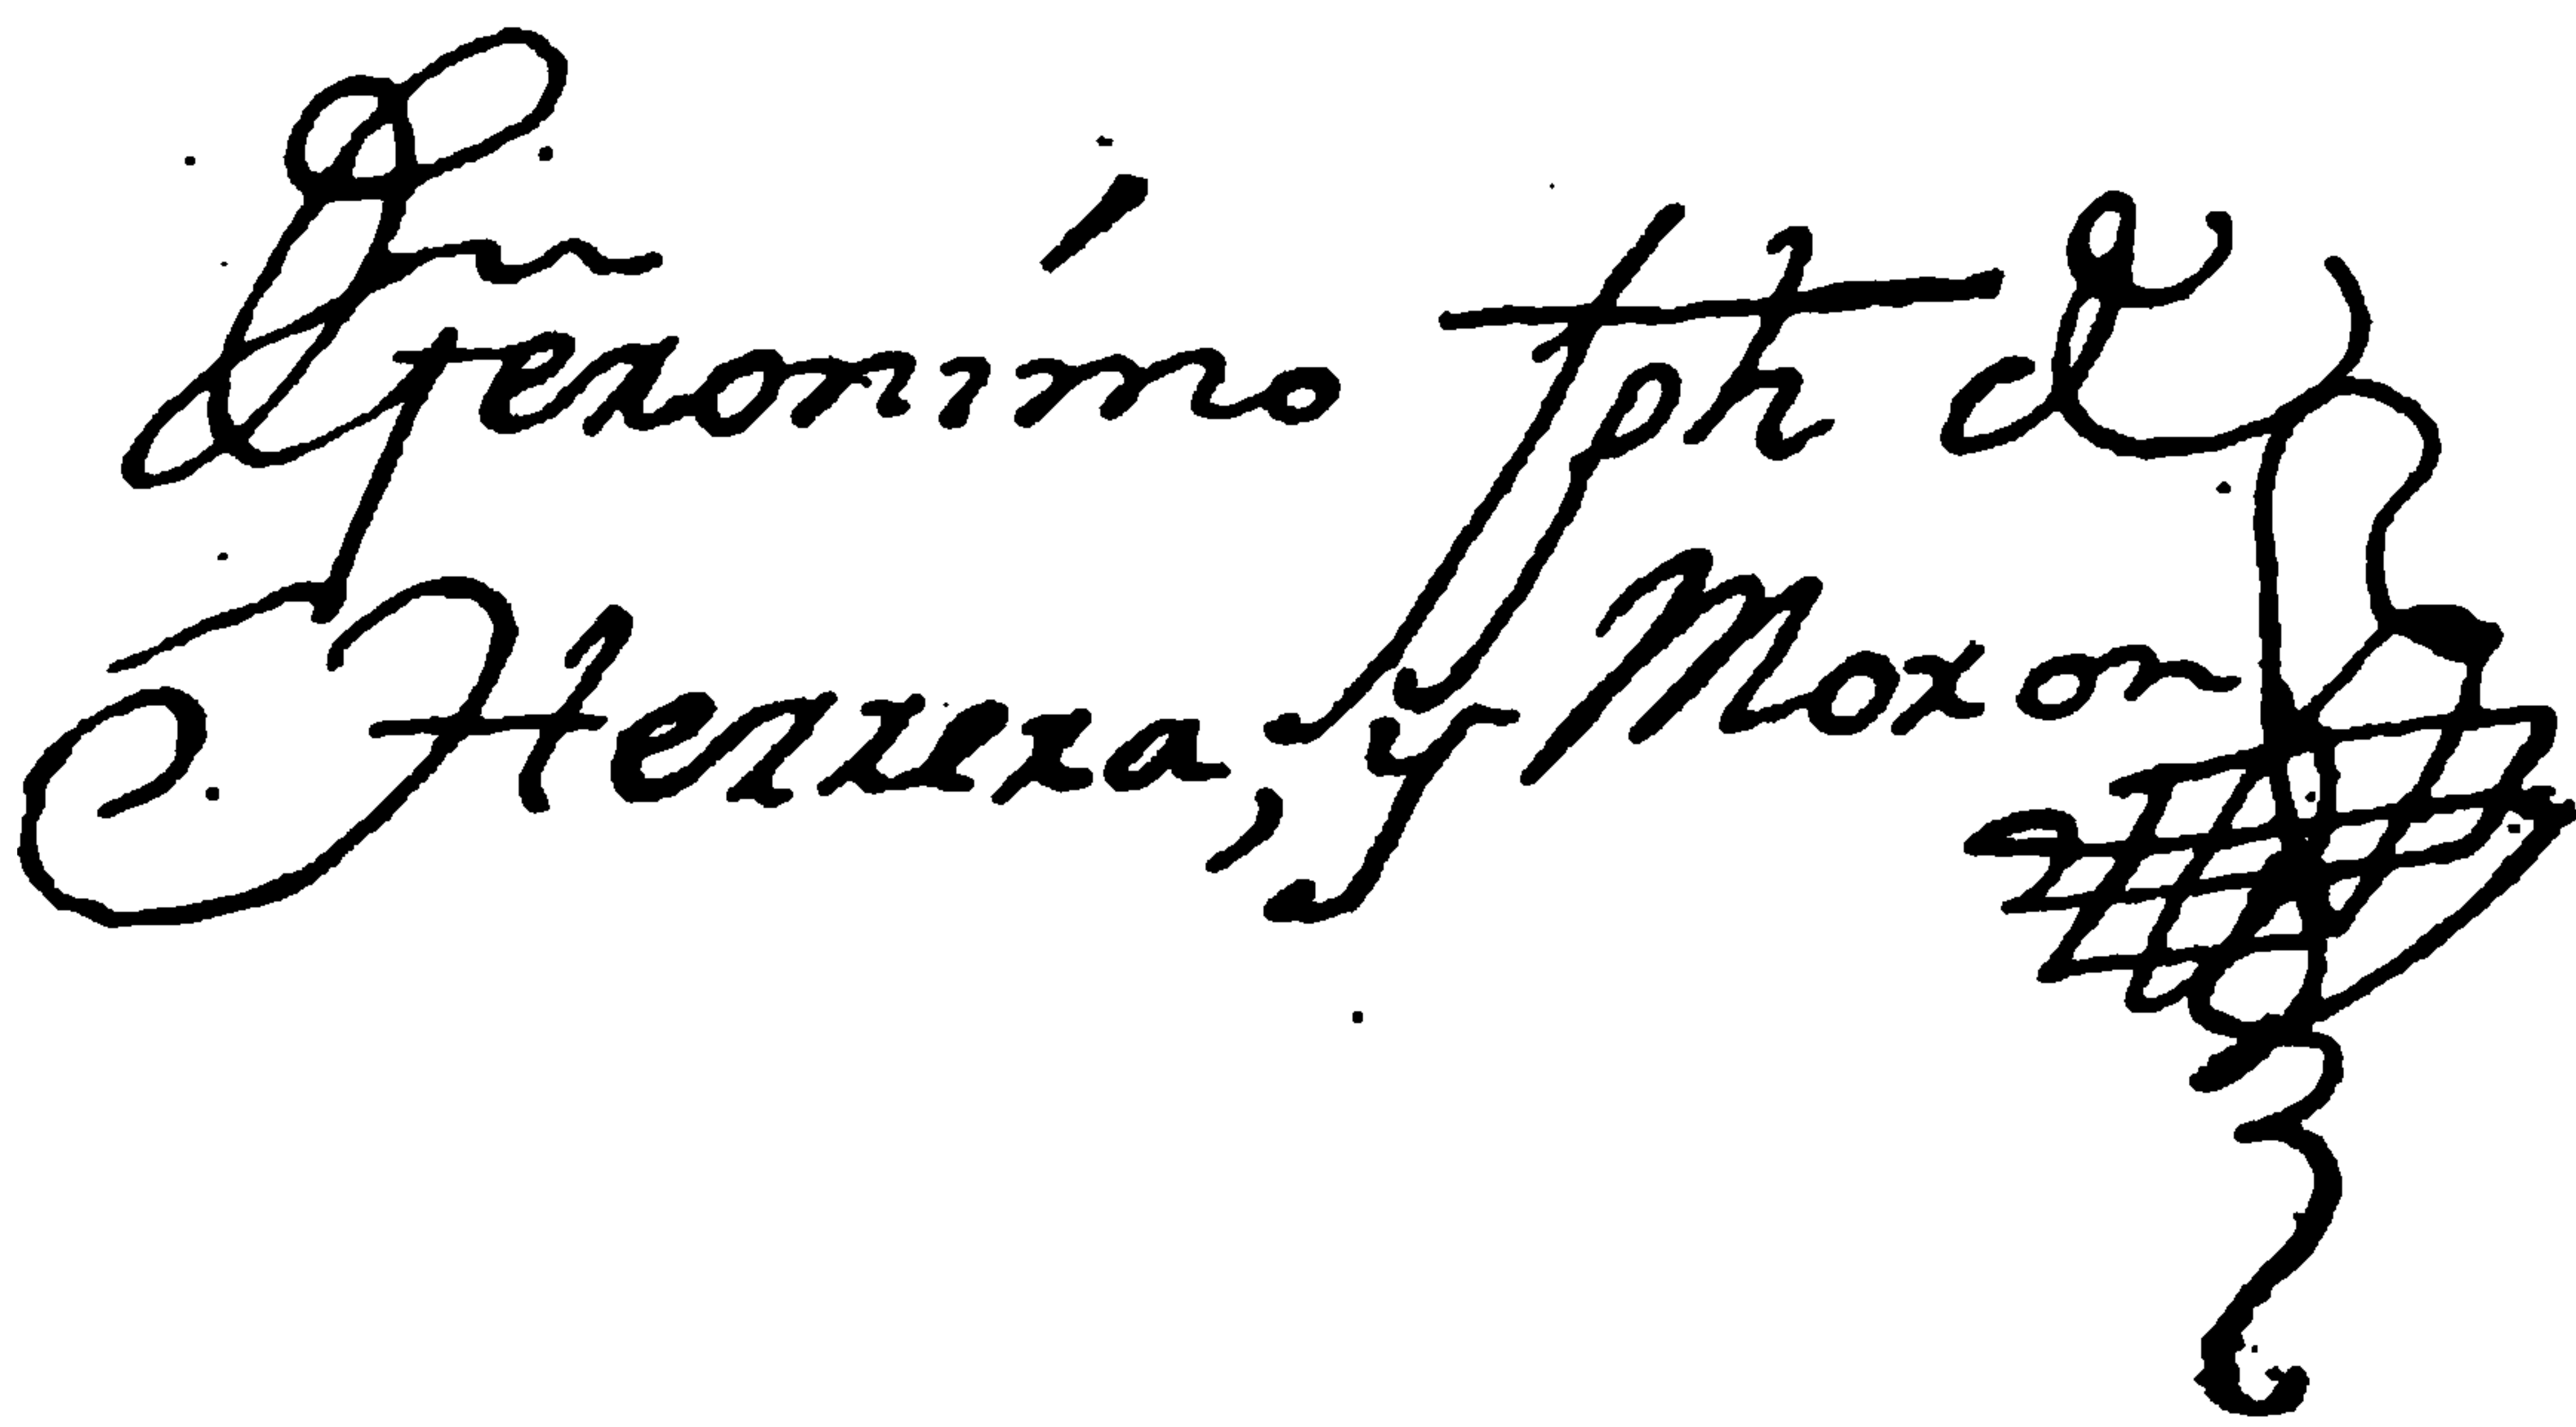 Dn Geronimo Jph de
Herrera, y Moron